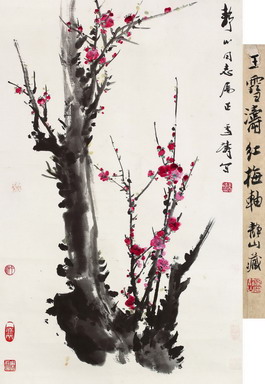 静山同志属正 雪涛写
王雪濤红梅軸 静山藏